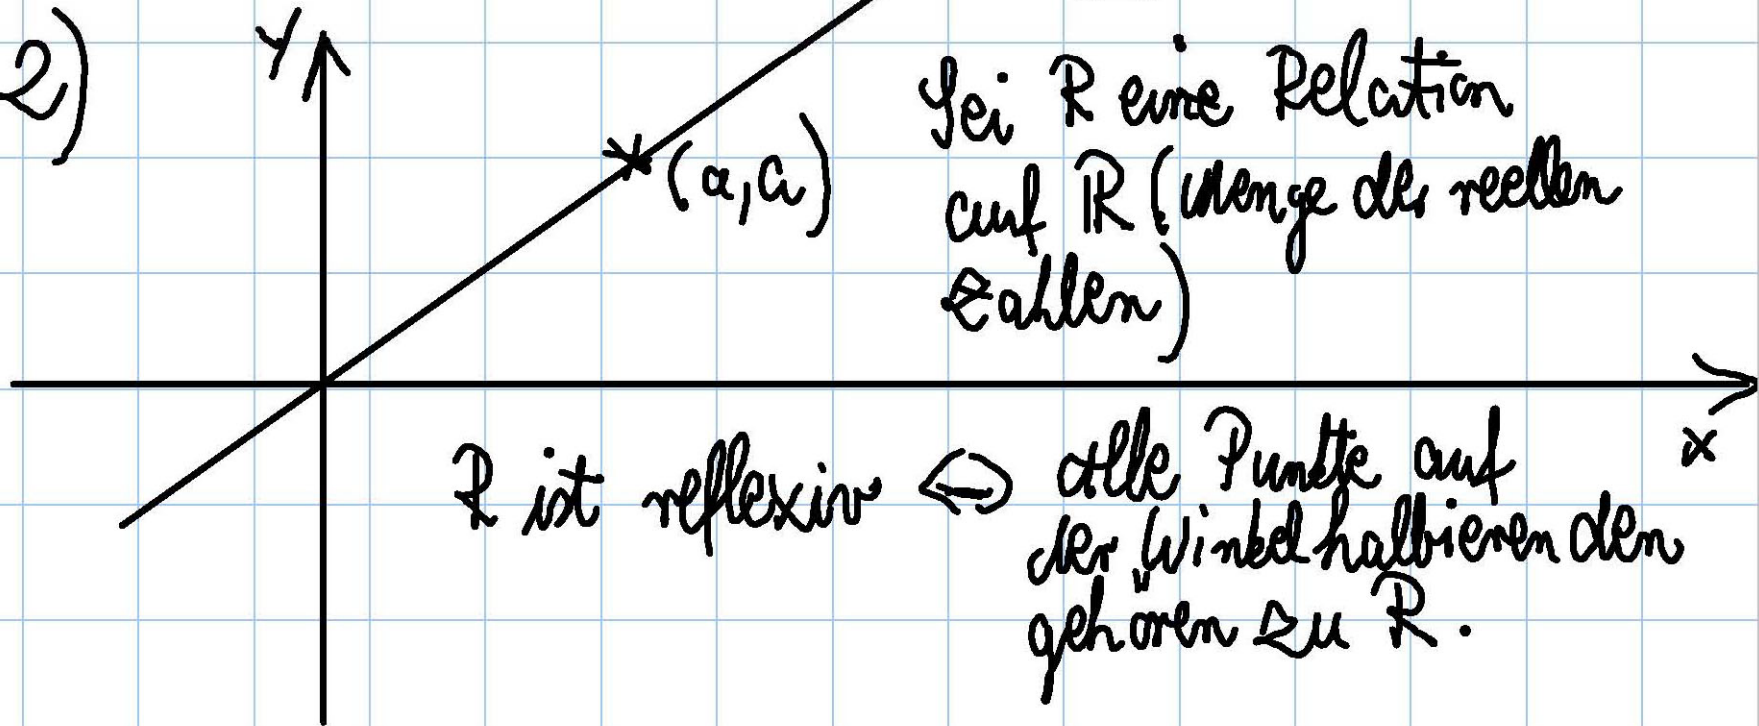 2)
Y
(a,a)
Sei R eine Relation
auf ℝ (Menge der reellen
Zahlen)
x
R ist reflexiv ⇔ Alle Punkte auf
der Winkelhalbierenden
gehören zu R.